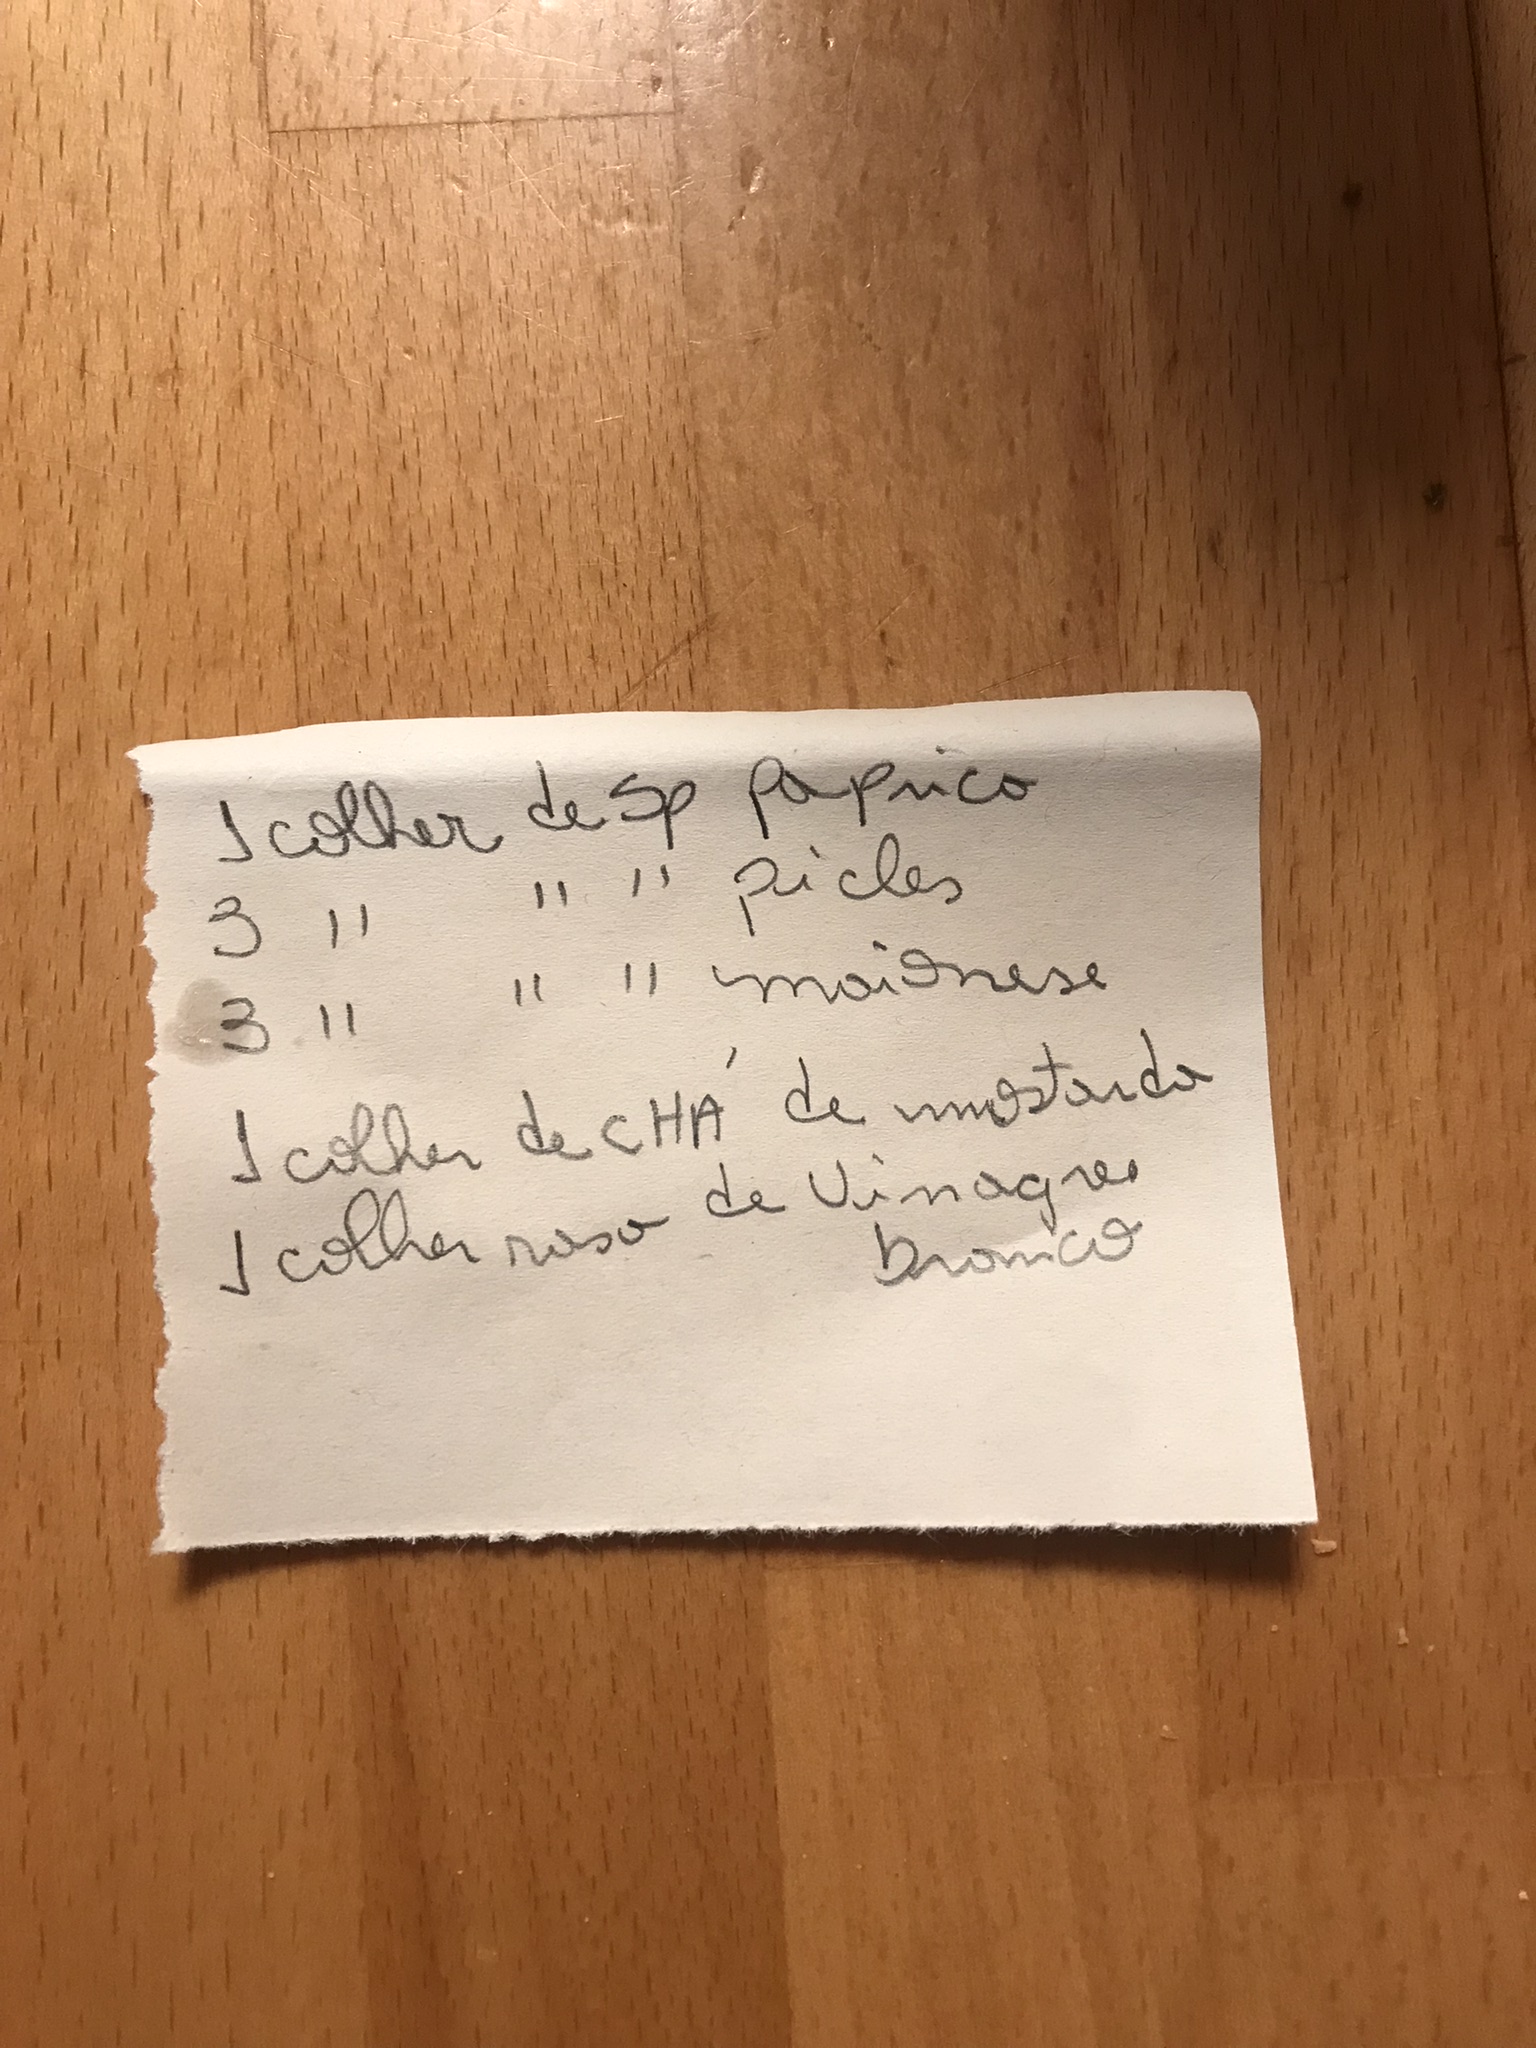 1 colher de sp paprica
3 " " " picles
3 " " " maionese
1 colher de CHÁ de mostarda
1 colher rasa de Vinagre
branco